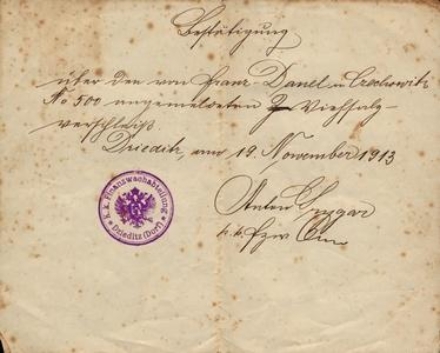 Bestätigung
über den von Franz Danel in Czechowitz
No 500 angemeldeten Viehsalz-
verschleiß.
Dzieditz, am 19. November 1913
k. k. Finanzwachabteilung
Dzieditz (Dorf)
Anton
k. k. Fzw